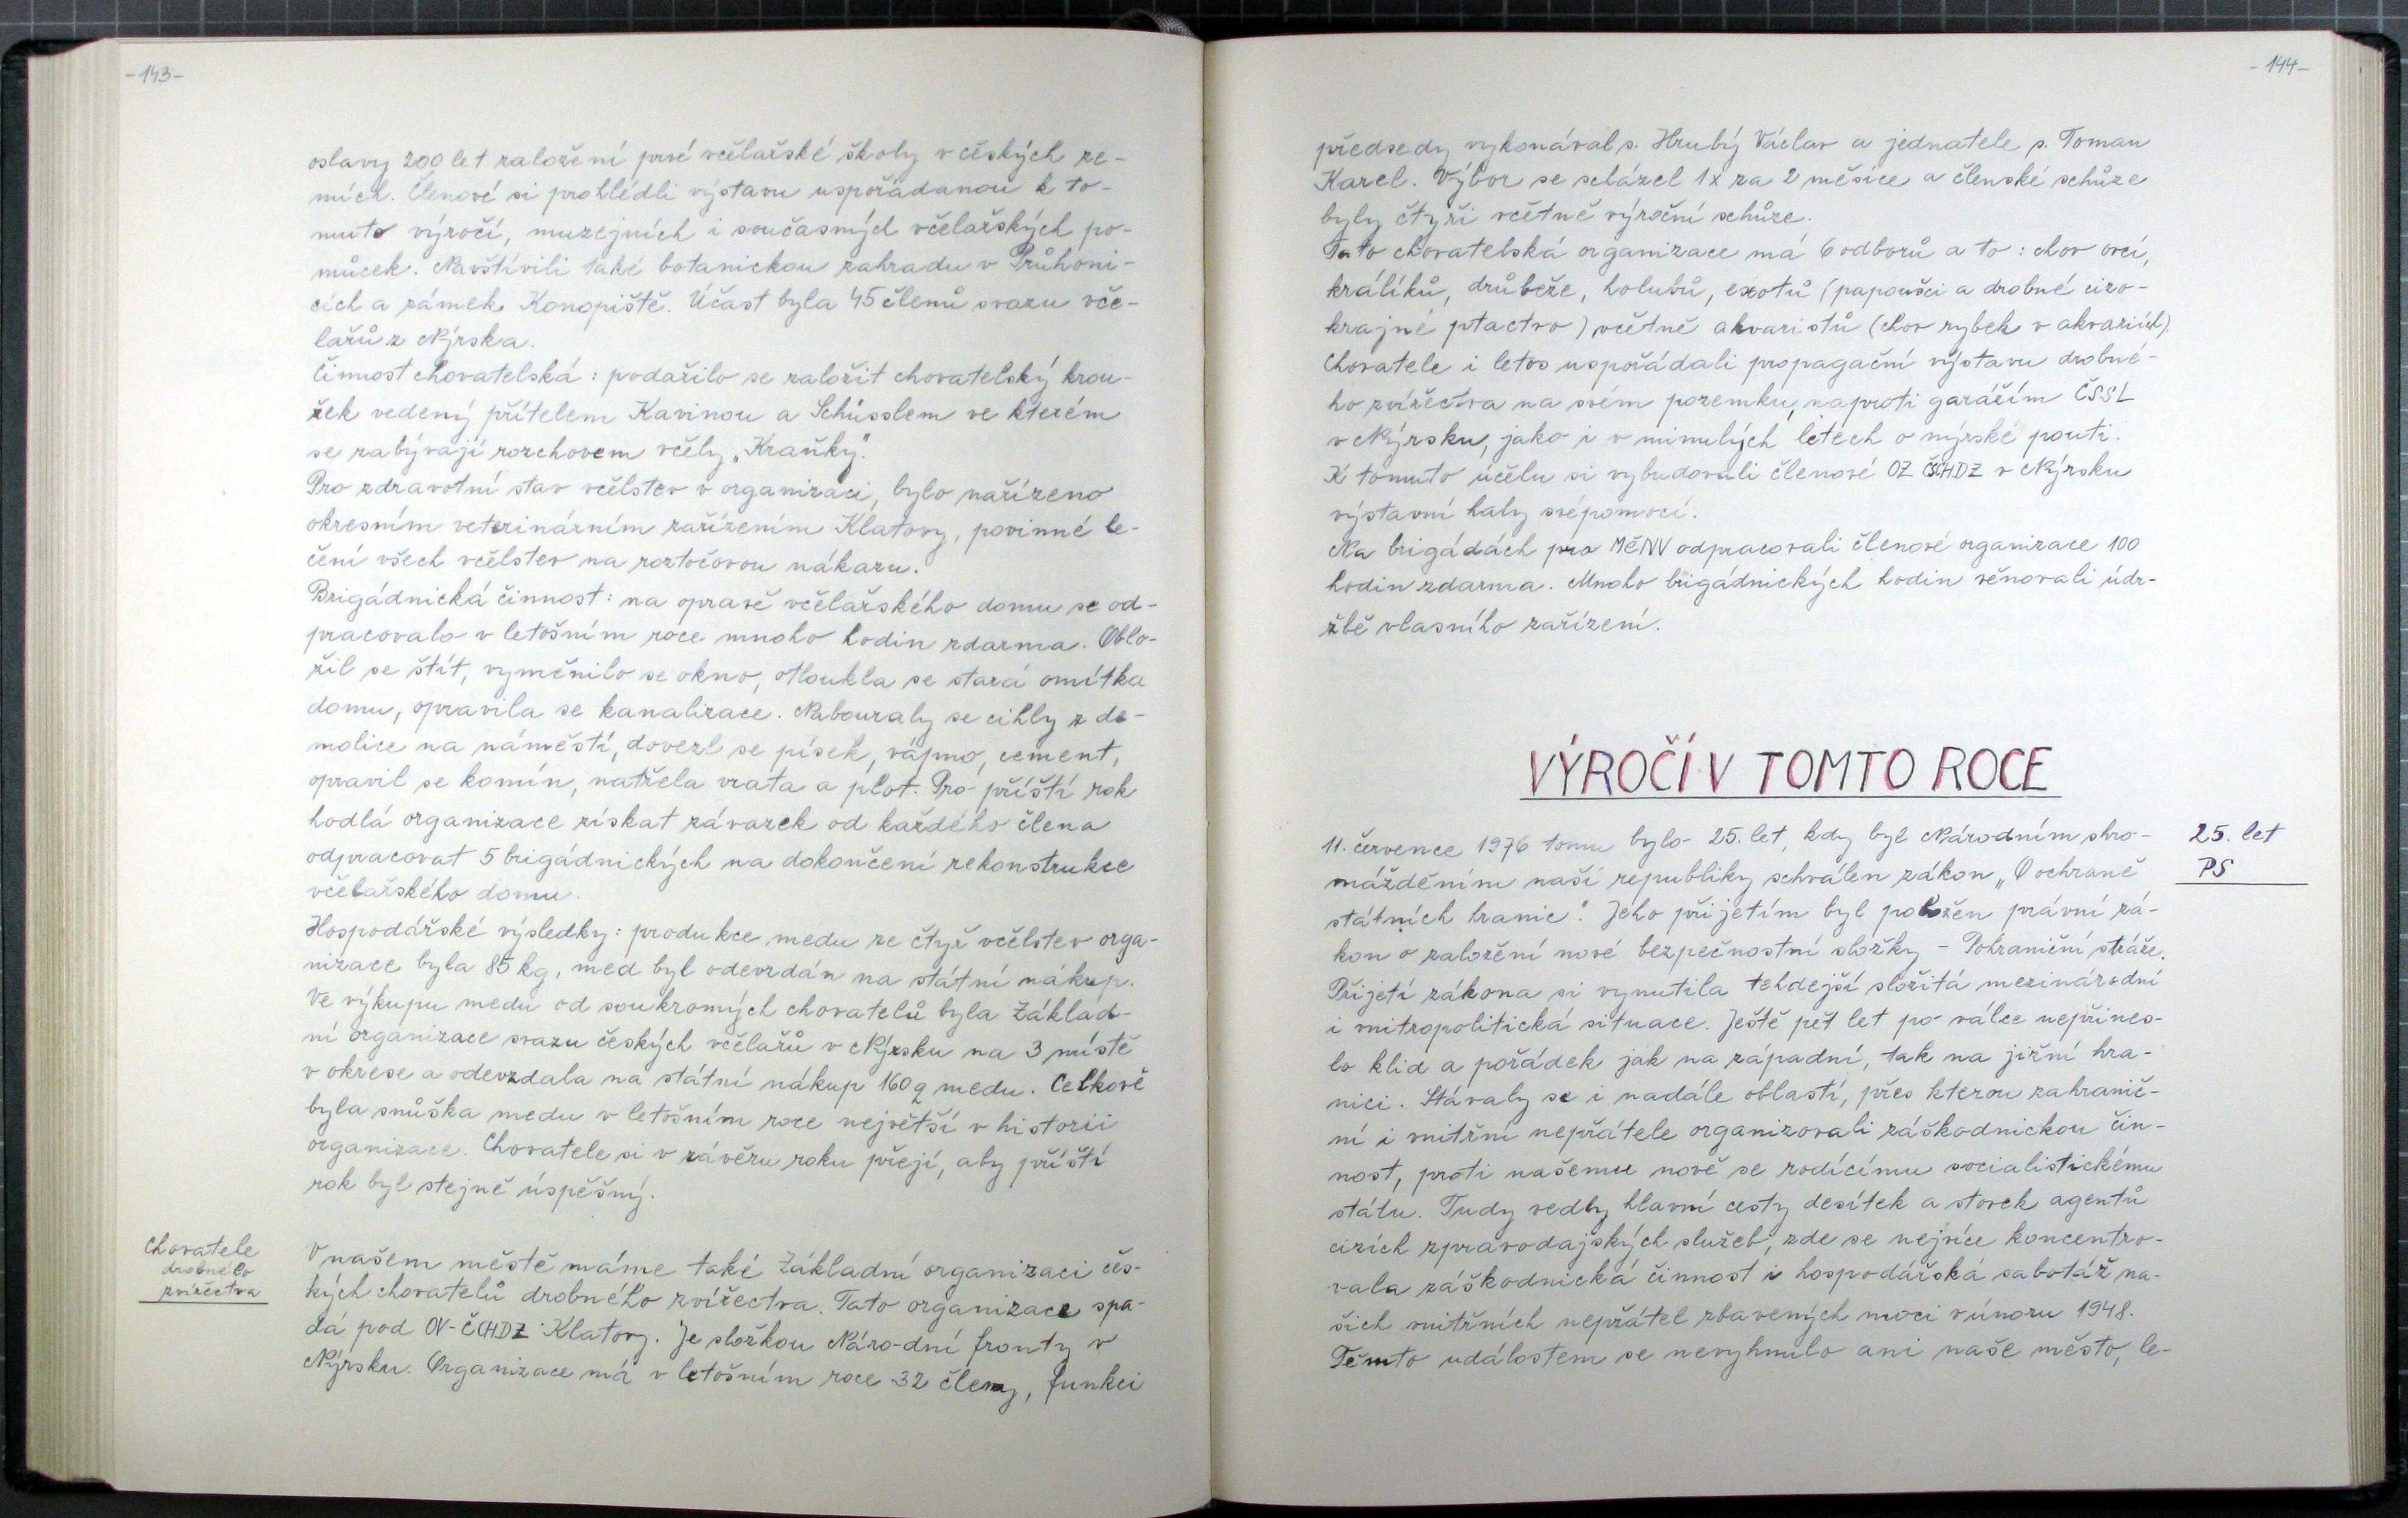 -143-
oslavy 200 let založení prvé včelařské školy v českých ze-
mích. Členové si prohlédli výstavu uspořádanou k to-
muto výročí, muzejních i současných včelařských po-
můcek. Navštívili také botanickou zahradu v Průhoni-
cích a zámek Konopiště. Účast byla 45 členů svazu vče-
lařů z Nýrska.
Činnost chovatelská: podařilo se založit chovatelský krou-
žek vedený přítelem Kavinou a Schüsslem ve kterém
se zabývají rozchovem včely „Kraňky".
Pro zdravotní stav včelstev v organizaci, bylo nařízeno
okresním veterinárním zařízením Klatovy, povinné lé-
čení všech včelstev na roztočovou nákazu.
Brigádnická činnost: na opravě včelařského domu se od-
pracovalo v letošním roce mnoho hodin zdarma. Oblo-
žil se štít, vyměnilo se okno, otloukla se stará omítka
domu, opravila se kanalizace. Nabouraly se cihly z de-
molice na náměstí, dovezl se písek, vápno, cement,
opravil se komín, natřela vrata a plot. Pro příští rok
hodlá organizace získat závazek od každého člena
odpracovat 5 brigádnických na dokončení rekonstrukce
včelařského domu.
Hospodářské výsledky: produkce medu ze čtyř včelstev orga-
nizace byla 85 kg, med byl odevzdán na státní nákup.
Ve výkupu medu od soukromých chovatelů byla Základ-
ní organizace svazu českých včelařů v Nýrsku na 3 místě
v okrese a odevzdala na státní nákup 160 q medu. Celkově
byla snůška medu v letošním roce největší v historii
organizace. Chovatele si v závěru roku přejí, aby příští
rok byl stejně úspěšný.
Chovatele
drobného
zvířectva
V našem městě máme také Základní organizaci čes-
kých chovatelů drobného zvířectva. Tato organizace spa-
dá pod OV-ČCHDZ Klatovy. Je složkou Národní fronty v
Nýrsku. Organizace má v letošním roce 32 členy, funkci
-144-
předsedy vykonával s. Hrubý Václav a jednatele s. Toman
Karel. Výbor se scházel 1x za 2 měsíce a členské schůze
byly čtyři včetně výroční schůze.
Tato chovatelská organizace má 6 odborů a to: chov ovcí,
králíků, drůbeže, holubů, exotů (papoušci a drobné cizo-
krajné ptactvo) včetně akvaristů (chov rybek v akvariích).
Chovatele i letos uspořádali propagační výstavu drobné-
ho zvířectva na svém pozemku, naproti garážím ČSSL
v Nýrsku, jako i v minulých letech o nýrské pouti.
K tomuto účelu si vybudovali členové OZ ČSCHDZ v Nýrsku
výstavní haly svépomocí.
Na brigádách pro MěNV odpracovali členové organizace 100
hodin zdarma. Mnoho brigádnických hodin věnovali údr-
žbě vlasního zařízení.
VÝROČÍ V TOMTO ROCE
25. let
PS
11. července 1976 tomu bylo 25. let, kdy byl Národním shro-
mážděním naší republiky schválen zákon „O ochraně
státních hranic". Jeho přijetím byl položen právní zá-
kon o založení nové bezpečnostní složky - Pohraniční stráže.
Přijetí zákona si vynutila tehdejší složitá mezinárodní
i vnitropolitická situace. Ještě pět let po válce nepřines-
lo klid a pořádek jak na západní, tak na jižní hra-
nici. Stávaly se i nadále oblastí, přes kterou zahranič-
ní i vnitřní nepřátele organizovali záškodnickou čin-
nost, proti našemu nově se rodícímu socialistickému
státu. Tudy vedly hlavní cesty desítek a stovek agentů
cizích zpravodajských služeb, zde se nejvíce koncentro-
vala záškodnická činnost i hospodářská sabotáž na-
šich vnitřních nepřátel zbavených moci v únoru 1948.
Těmto událostem se nevyhnulo ani naše město, le-